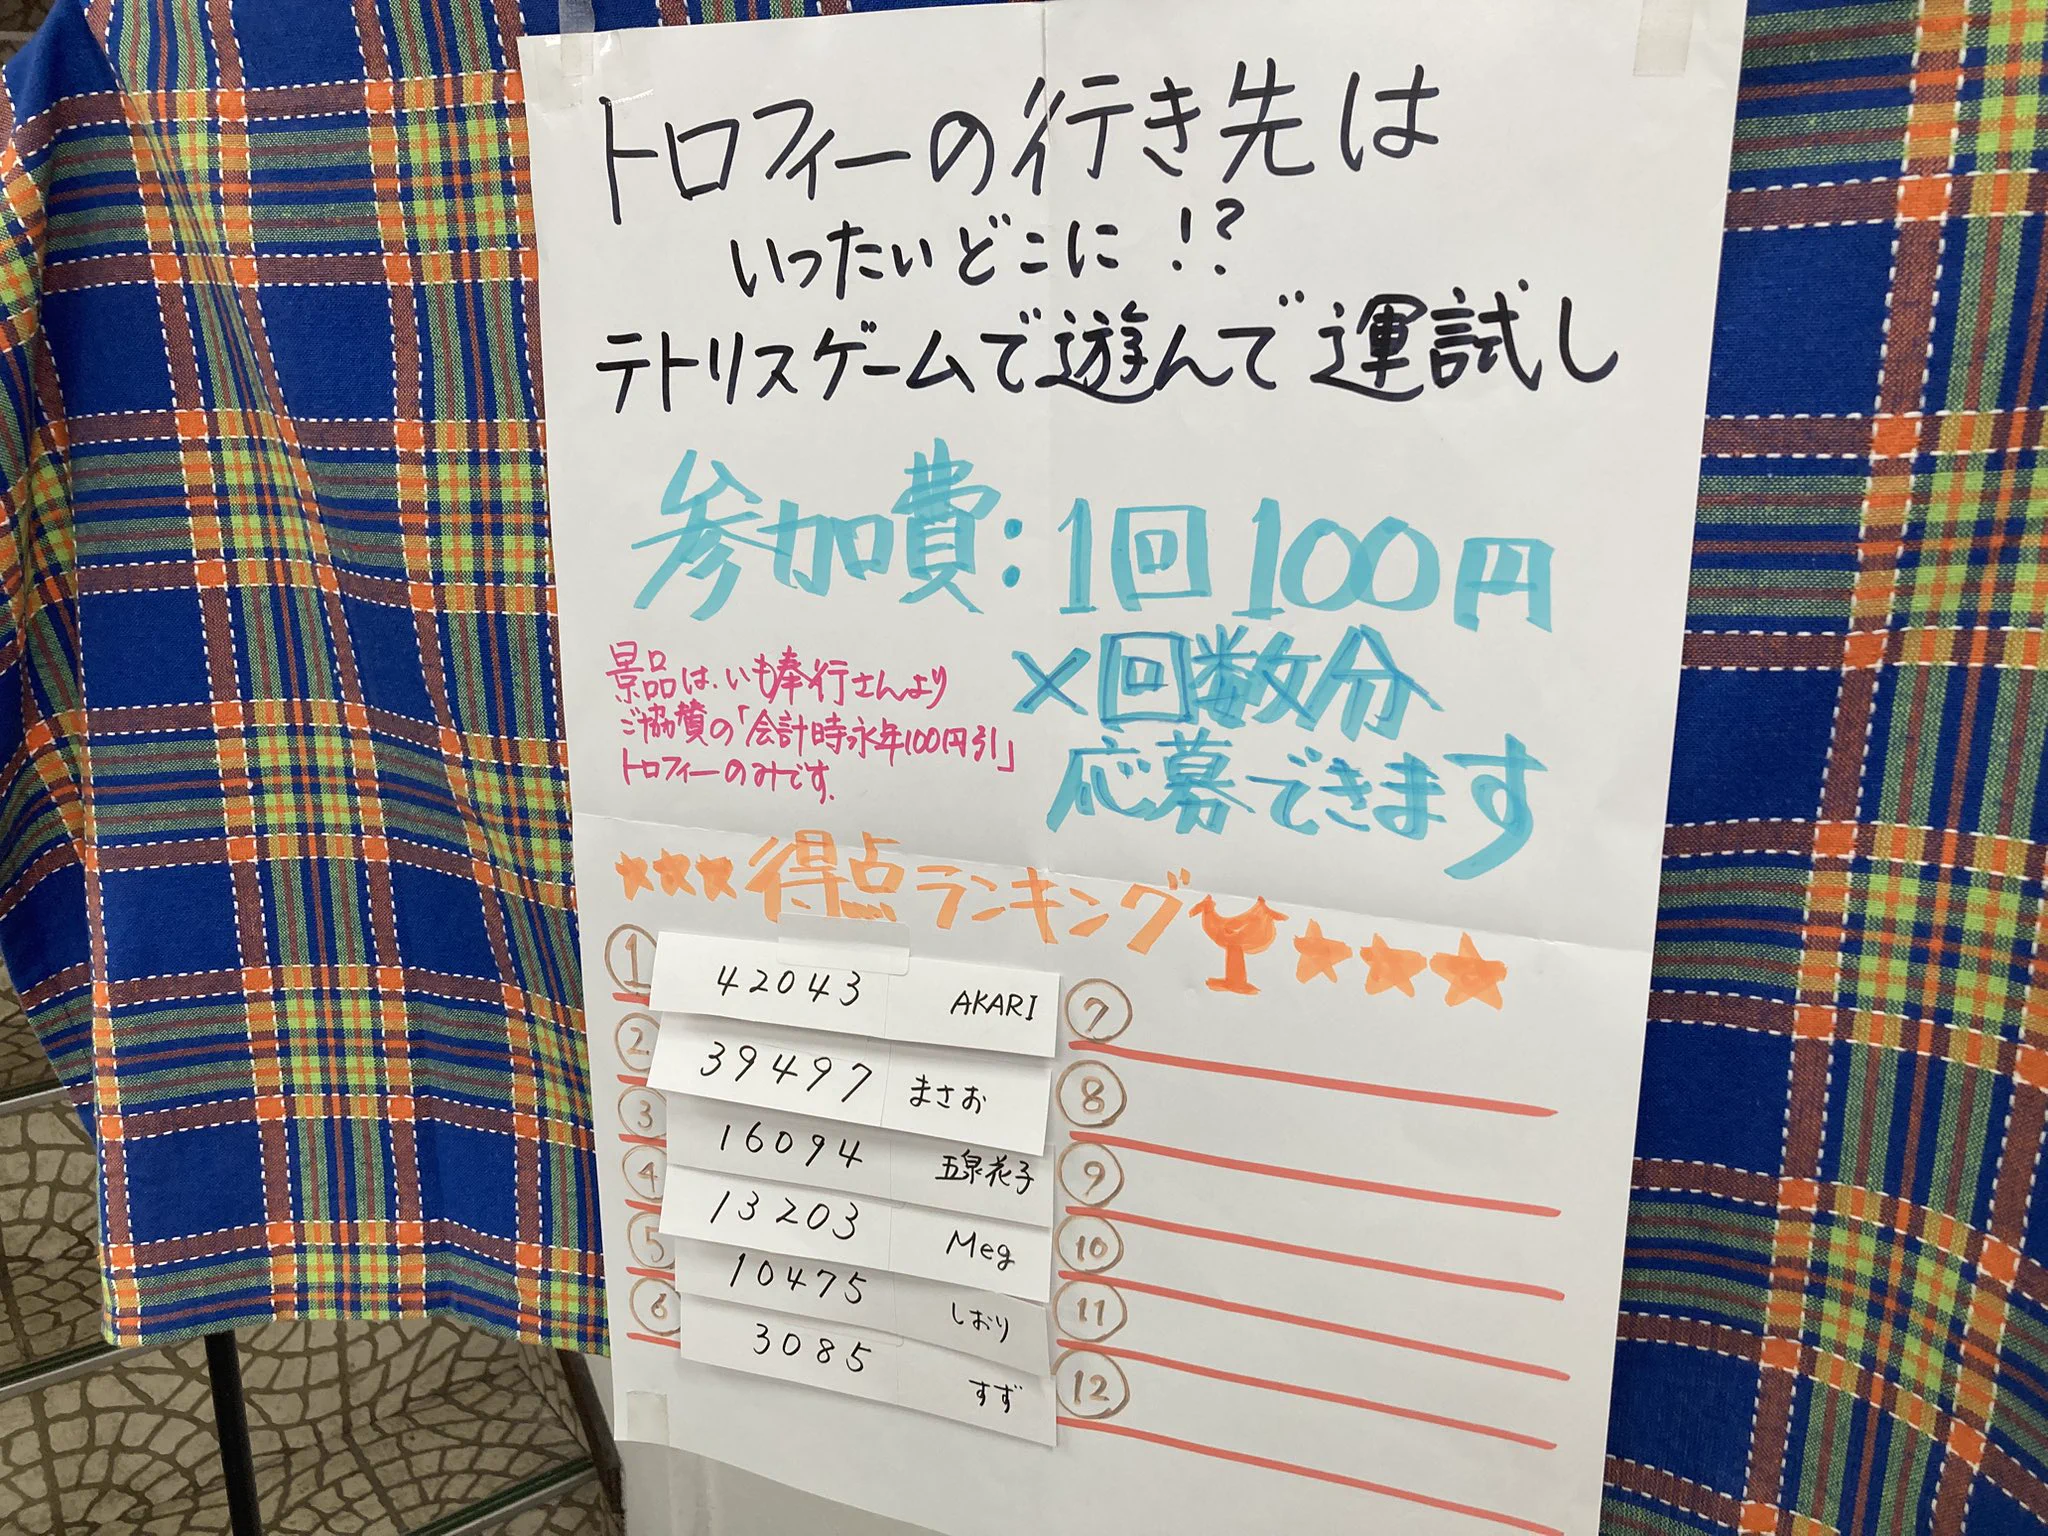 トロフィーの行き先は
いったいどこに!?
テトリスゲームで遊んで運試し
参加費:1回100円
×回数分
応募できます
景品は、いも奉行さんより
ご協賛の「会計時永年100円引」
トロフィーのみです。
★★★得点ランキング🏆★★★
① 42043 AKARI
② 39497 まさお
③ 16094 五泉花子
④ 13203 Meg
⑤ 10475 しおり
⑥ 3085 すず
⑦
⑧
⑨
⑩
⑪
⑫